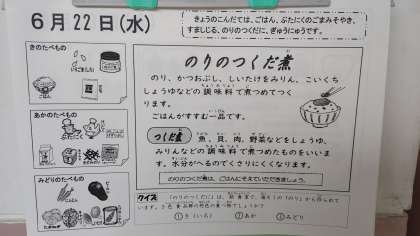 6月22日(水)
きょうのこんだては、ごはん、ぶたにくのごまみそやき、
すましじる、のりのつくだに、ぎゅうにゅうです。
きのたべもの
ごはん
あかのたべもの
みどりのたべもの
のりのつくだ煮
のり、かつおぶし、しいたけをみりん、こいくち
しょうゆなどの調味料で煮つめてつく
ります。
ごはんがすすむ一品です。
つくだ煮
魚、貝、肉、野菜などをしょうゆ、
みりんなどの調味料で煮つめたものをいいま
す。水分がへるのでくさりにくくなります。
のりのつくだ煮は、ごはんにそえていただきましょう。
クイズ
「のりのつくだに」は、
の「のり」から作られて
います。3色食品群の何色の食べ物でしょうか？
①き(いろ)
②あか
③みどり